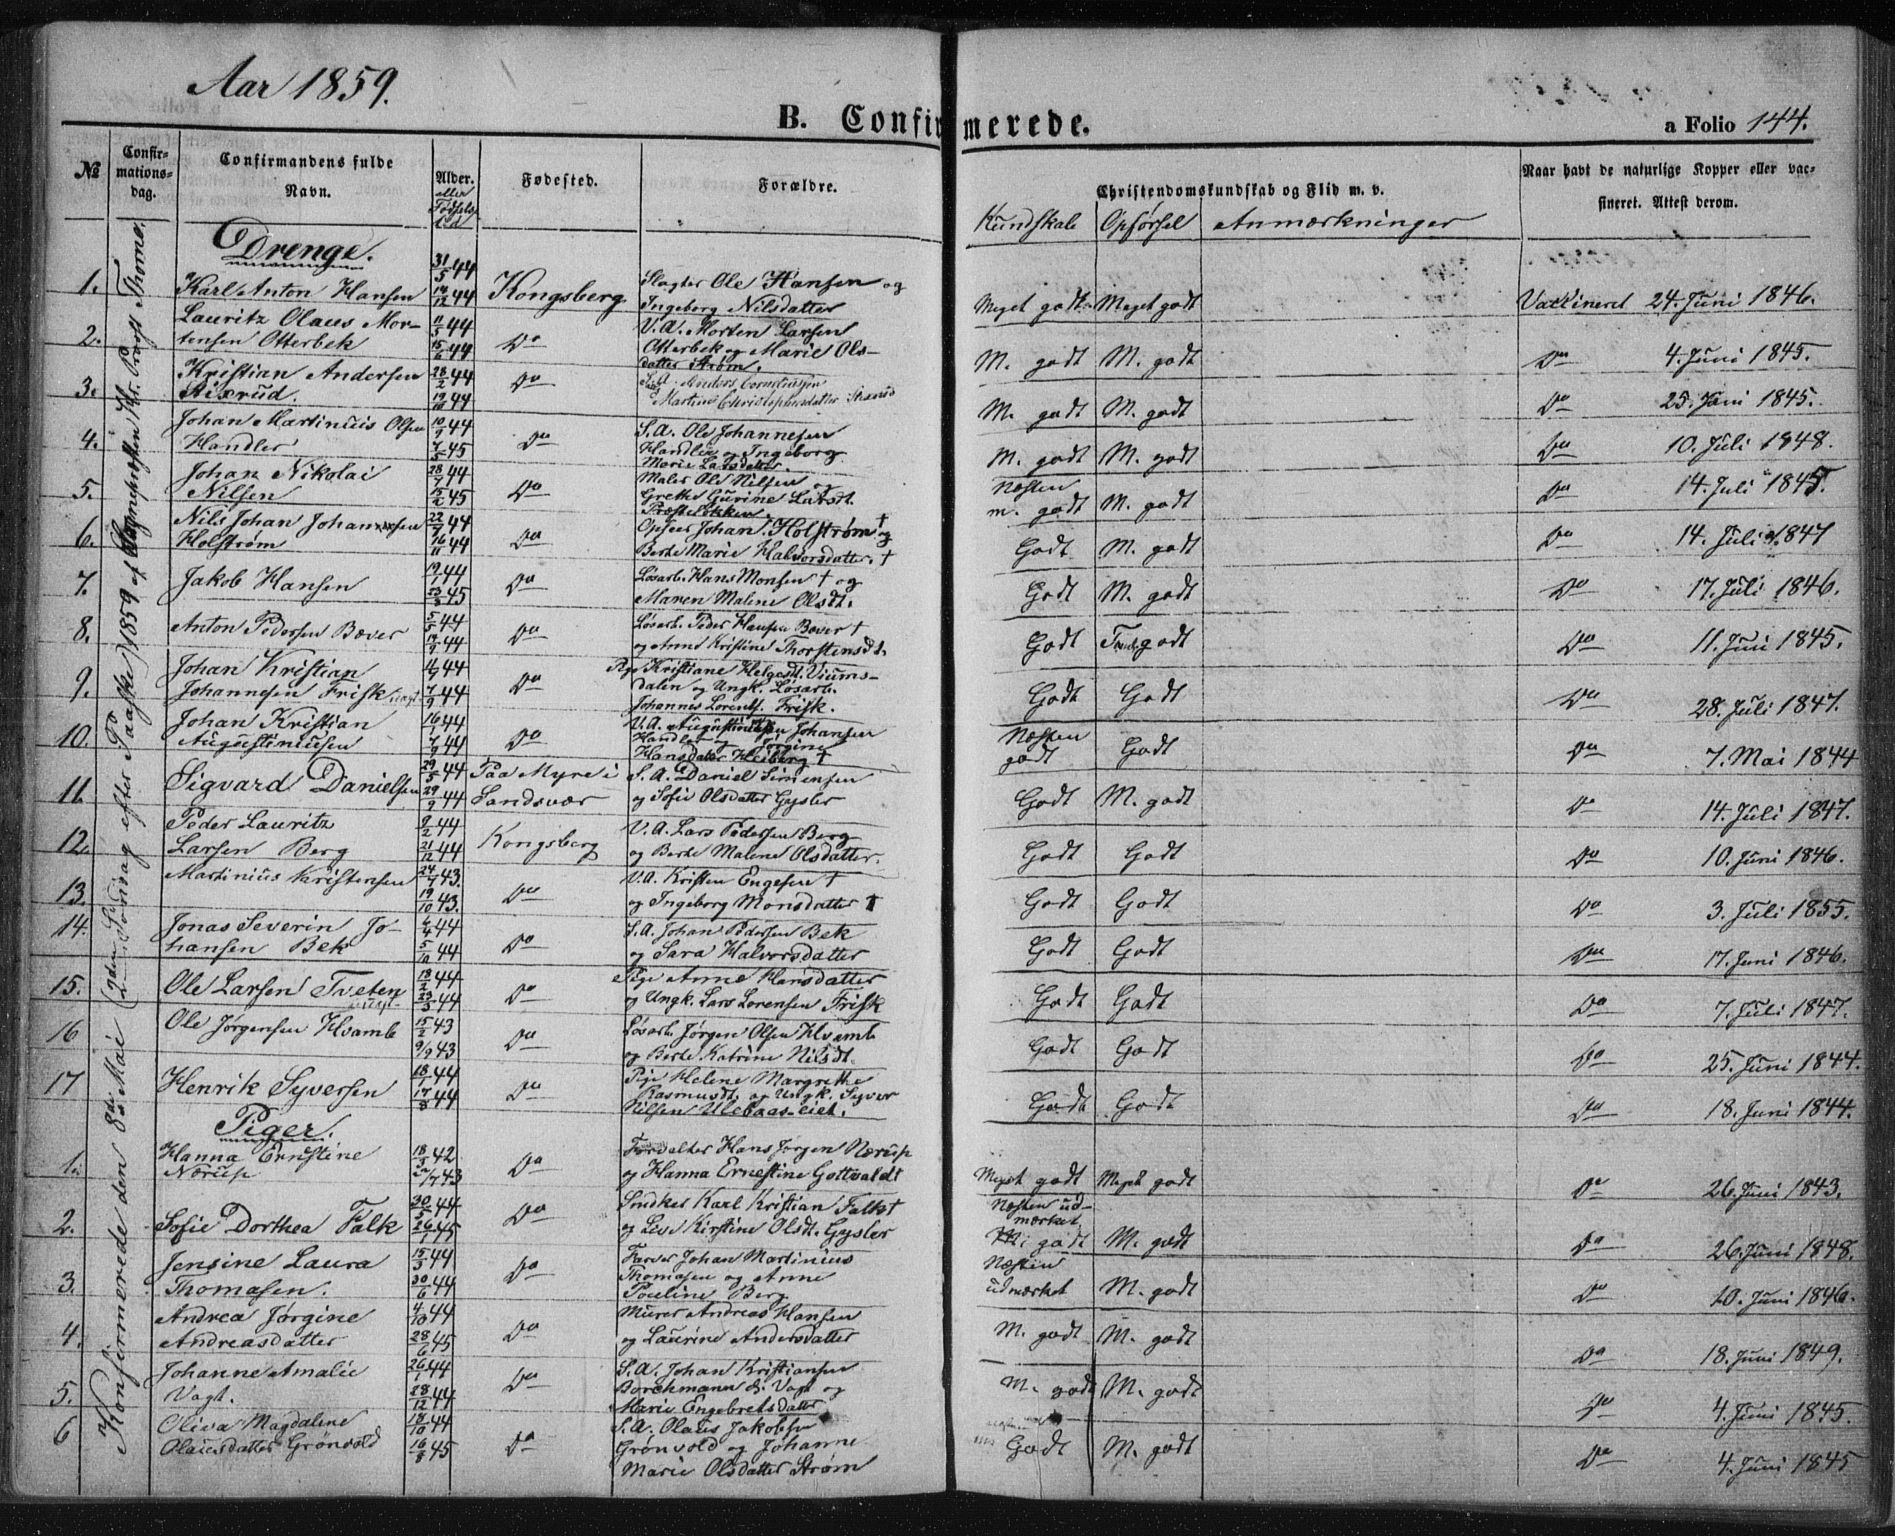 Aar 1859.
B. Confirmerede.
a Folio 144.
№
Confir-
mations-
dag.
Confirmandens fulde
Navn.
Alder.
eller
Fødsels
Fødested.
Forældre.
Christendomskundskab og Flid m. v.
Kundskab Opførsel Anmærkninger
Naar havt de naturlige Kopper eller vac-
sineret. Attest derom.
Konfirmerede den 8de Mai (2den Søndag efter Paaske) 1859 af Sognepræsten Hr. Provst Thome.
Drenge.
1. Karl Anton Hansen 31/5 44 14/12 44 Kongsberg Slagter Ole Hansen og
Ingeborg Nilsdatter Meget godt Meget godt Vaccineret 24. Juni 1846.
2. Lauritz Olaus Mor-
tensen Otterbek 11/5 44 15/6 44 Do V.A. Morten Larsen
Otterbek og Marie Ols-
datter Strøm. M. godt M. godt Do 4. Juni 1845.
3. Kristian Andersen 28/2 44 19/10 44 Do S.A. Anders Corneliussen
Martine Christophersdatter M. godt M. godt Do 25. Juni 1845.
4. Johan Martinius Olsen
Handler 10/9 44 7/5 45 Do S.A. Ole Johannesen
Handler og Ingeborg
Marie Larsdatter. M. godt M. godt Do 10. Juli 1848.
5. Johan Nikolai
Nilsen 28/7 44 15/2 45 Do Maler Ole Nilsen og
Grethe Gurine Larsdt.
Præsteløkken. Næsten
m. godt M. godt Do 14. Juli 1845.
6. Nils Johan Johannesen
Holstrøm 22/7 44 16/11 44 Do Opseer Johan Holstrøm † og
Berte Marie Halvorsdatter. † Godt M. godt Do 14. Juli 1847
7. Jakob Hansen 19/1 44 23/3 45 Do Løsarb. Hans Monsen † og
Maren Malene Olsdt. Godt M. godt Do 17. Juli 1846.
8. Anton Pedersen Bæver 5/5 44 19/9 44 Do Løsarb. Peder Hansen Bæver †
og Anne Kristine Thorstensdt. Godt godt Do 11. Juni 1845.
9. Johan Kristian
Johannesen Frisk 4/9 44 7/9 44 Do Pige Kristiane Helgesdt. Viums-
dalen og Ungk. Løsarb.
Johannes Lorents. Frisk. Godt Godt Do 28. Juli 1847.
10. Johan Kristian
Augustinusen 16/1 44 7/9 44 Do V.A. Augustinusen Johansen
Handler og Jørgine
Hansdatter Heiberg † Næsten
godt Godt Do 7. Mai 1844
11. Sigvard Danielsen 29/5 44 29/9 44 Paa Myre i
Sandsvær S.A. Daniel Simensen
og Sofie Olsdatter Gysler Godt M. godt Do 14. Juli 1847.
12. Peder Lauritz
Larsen Berg 9/2 44 21/12 44 Kongsberg V.A. Lars Pedersen Berg
og Berte Malene Olsdatter. Godt Godt Do 10. Juni 1846.
13. Martinius Kristensen 24/7 43. 19/10 43. Do V.A. Kristen Engesen †
og Ingeborg Monsdatter † Godt Godt Do 3. Juli 1855.
14. Jonas Severin Jo-
hansen Bek 6/4 44 5/10 44 Do S.A. Johan Pedersen Bek
og Sara Halvorsdatter Godt Godt Do 17. Juni 1846.
15. Ole Larsen Tveten 13/2 44 23/3 44 Do Pige Anne Hansdatter
og Ungk. Lars Lorensen Frisk Godt Godt Do 7. Juli 1847.
16 Ole Jørgensen Hvamb 15/2 43 9/9 43 Do Løsarb. Jørgen Olsen Hvamb
og Berte Katrine Nilsdt. Godt Godt Do 25. Juni 1844.
17 Henrik Syversen 18/1 44 17/8 44 Do Pige Helene Margrethe
Rasmusdt. og Ungk. Syver
Nilsen Ulebaas-eiet. Godt Godt Do 18. Juni 1844.
Piger.
1. Hanna Ernstine
Nørup 18/3 42 2/7 43 Do Forvalter Hans Jørgen Nørup
og Hanna Ernestine Gottvaldt Meget godt Meget godt Do 26. Juni 1843.
2. Sofie Dorthea Falk 30/5 44 26/1 45 Do Snedker Karl Kristian Falk †
og Leve Kirstine Olsdt. Gysler Næsten ud-
mærket
M. godt M. godt Do 26. Juni 1848.
3. Jensine Laura
Thomasen. 15/3 44 30/6 44 Do Farver Johan Martinius
Thomasen og Anne
Pouline Berg Næsten
udmærket M. godt Do 10. Juni 1846.
4. Andrea Jørgine
Andreasdatter 4/10 44 28/6 45 Do Murer Andreas Hansen
og Laurine Andersdatter M. godt M. godt Do 18. Juni 1849.
5. Johanne Amalie
Vagt. 26/1 44 28/12 44 Do S.A. Johan Kristiansen
Borchmann d. Vagt og
Marie Engebretsdatter M. godt M. godt Do 4. Juni 1845.
6 Oliva Magdalene
Olausdatter Grønvold 18/10 44 16/3 45 Do S.A. Olaus Jakobsen
Grønvold og Johanne
Marie Olsdatter Strøm Godt M. godt Do 4. Juni 1845